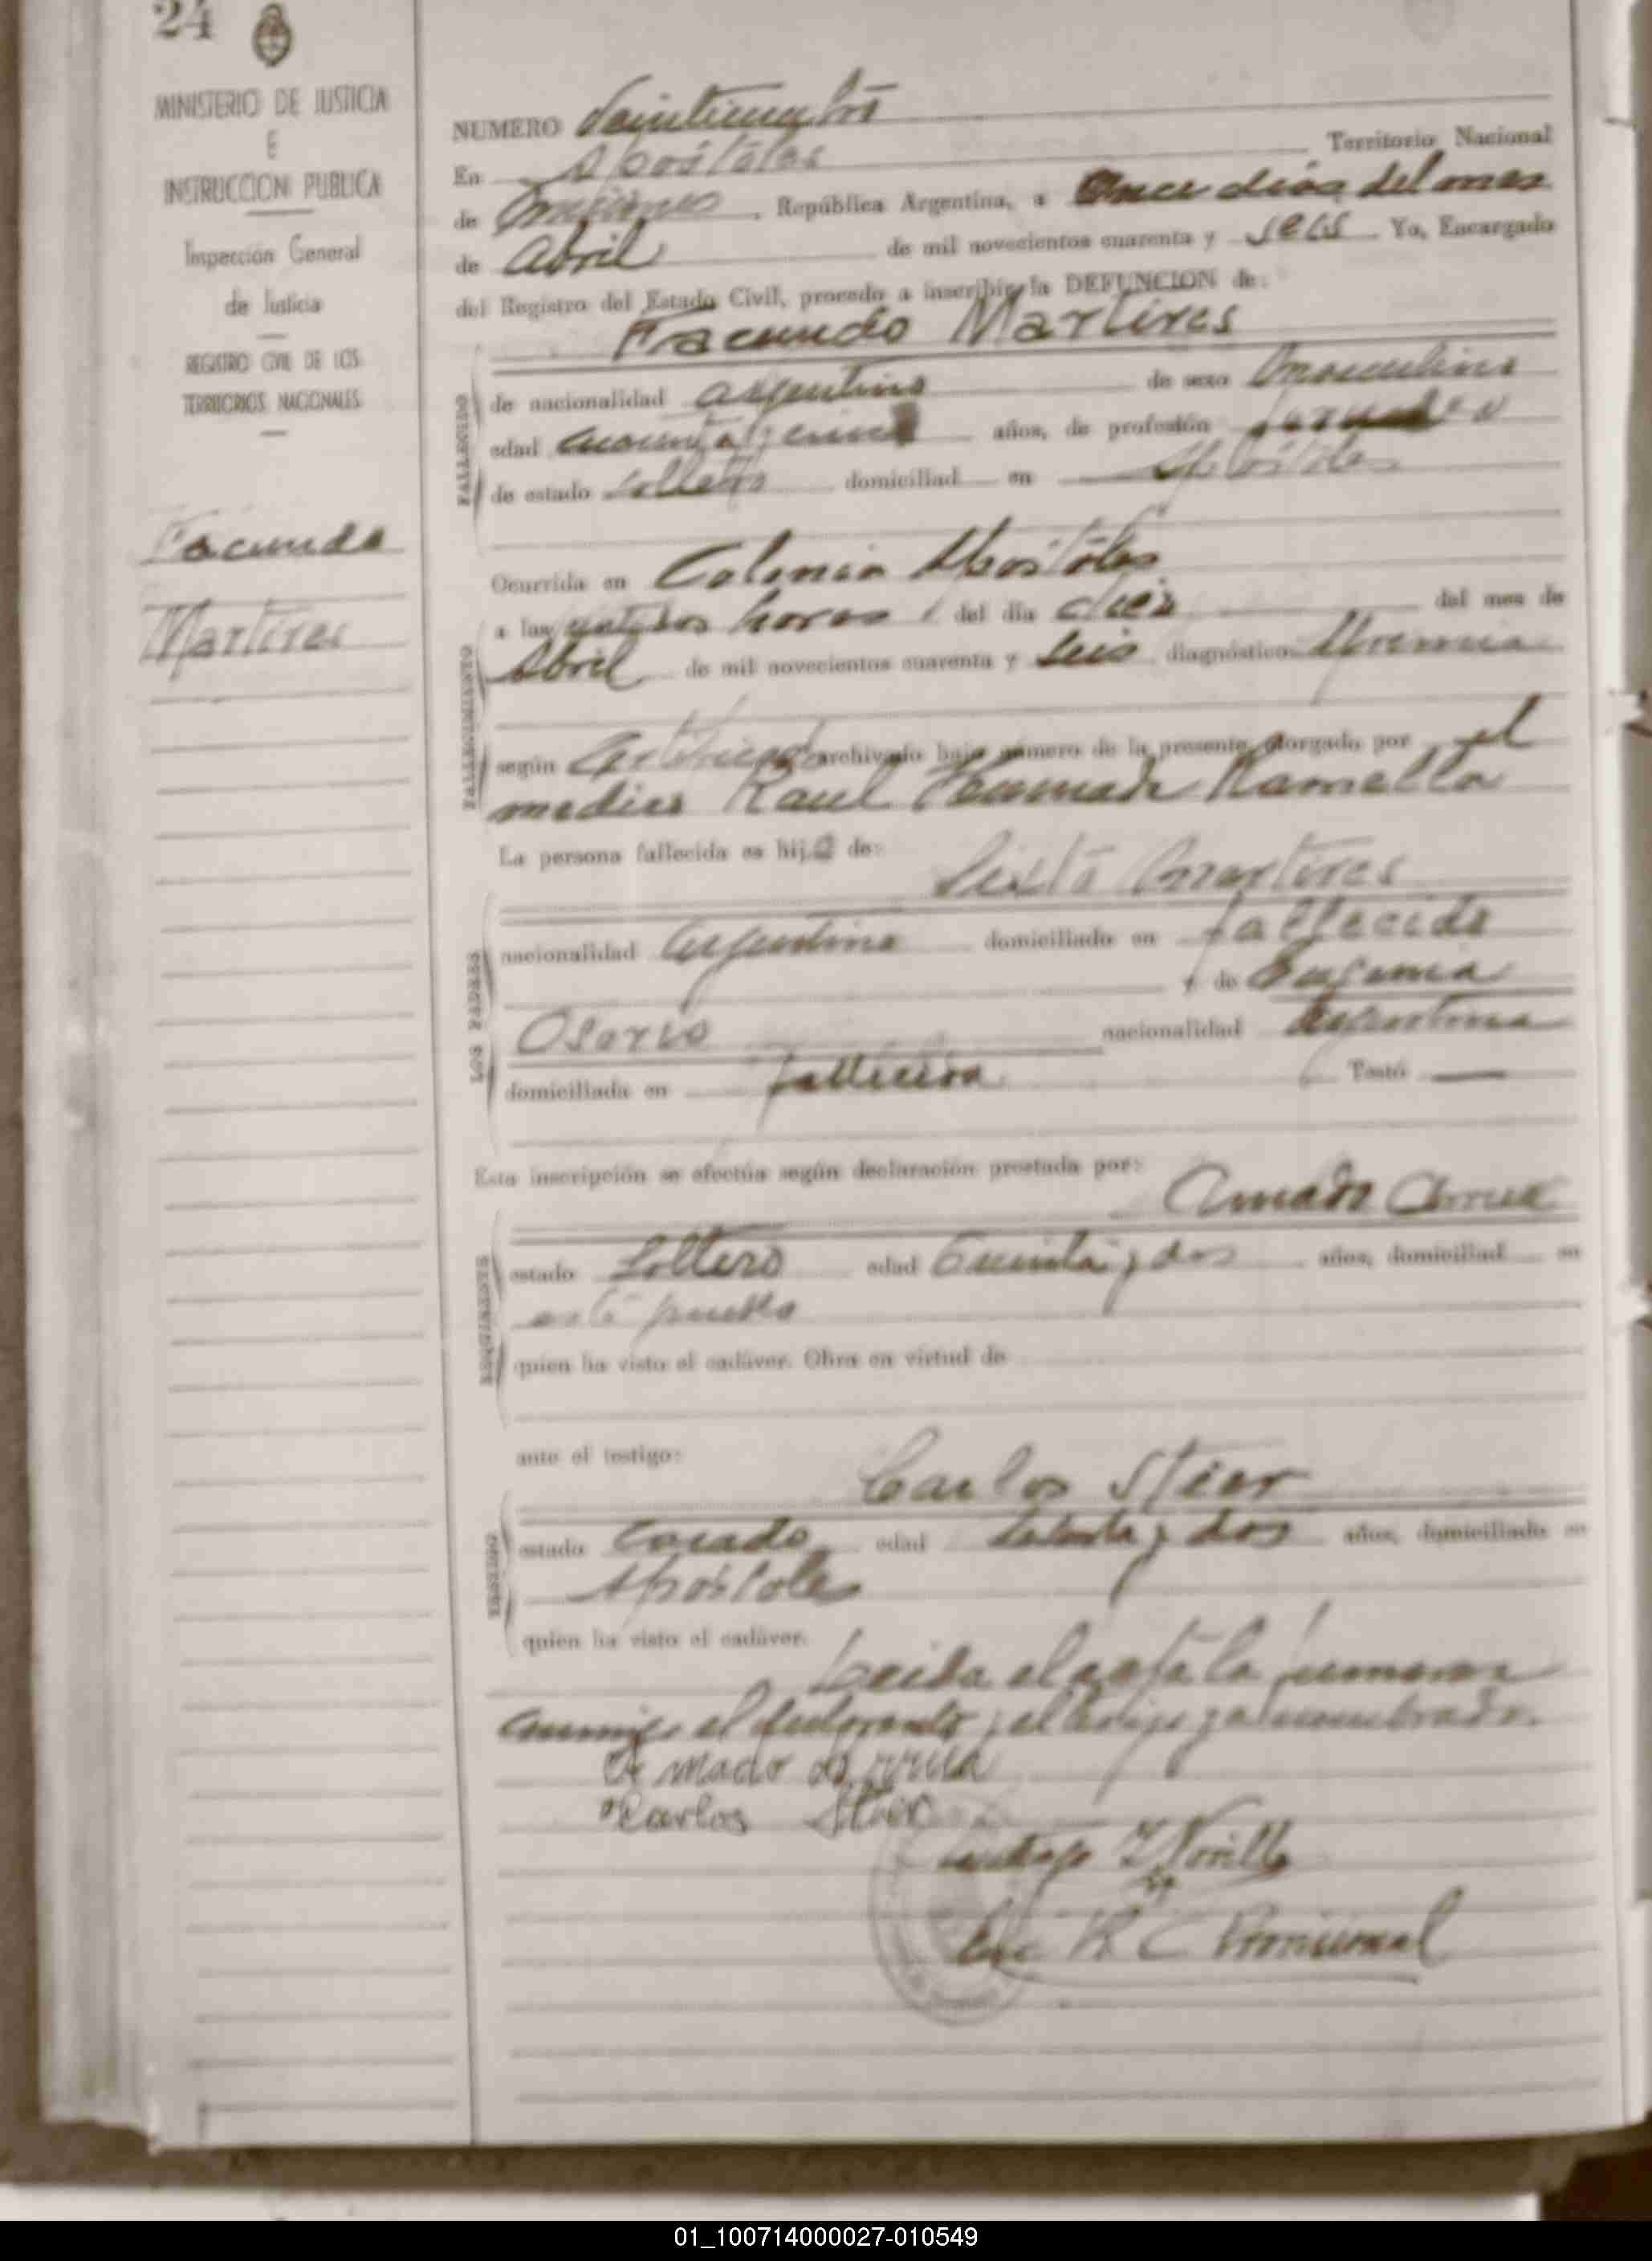 24
MINISTERIO DE JUSTICIA
E
INSTRUCCION PUBLICA
Inspección General
de Justicia
REGISTRO CIVIL DE LOS
TERRITORIOS NACIONALES
Facundo
Martires
NUMERO Veinticuatro
En Apóstoles Territorio Nacional
de Misiones, República Argentina, a Once dias del mes
de Abril de mil novecientos cuarenta y seis Yo, Encargado
del Registro del Estado Civil, procedo a inscribir la DEFUNCION de:
Facundo Martires
FALLECIDO
de nacionalidad argentino de sexo masculino
edad años, de profesión
de estado soltero domiciliad en Apóstoles
FALLECIMIENTO
Ocurrida en Colonia Apóstoles
a las horas del dia diez del mes de
Abril de mil novecientos cuarenta y seis diagnóstico: Uremia
según Certificado archivado bajo número de la presente otorgado por el
medico Raul Ramella
La persona fallecida es hijo de:
LOS PADRES
Sixto Martires
nacionalidad Argentina domiciliado en fallecido
y de Eugenia
Osorio nacionalidad Argentina
domiciliada en fallecida Testó
Esta inscripción se efectúa según declaración prestada por:
REQUIRENTE
Amado
estado Soltero edad y dos años, domiciliad en
este pueblo
quien ha visto el cadáver. Obra en virtud de
ante el testigo:
TESTIGO
Carlos Stier
estado Casado edad y dos años, domiciliado en
Apóstoles
quien ha visto el cadáver.
Leida el acta la
conmigo el y el testigo ya nombrado.
Amado
Carlos Stier
R C Provisional
01_100714000027-010549